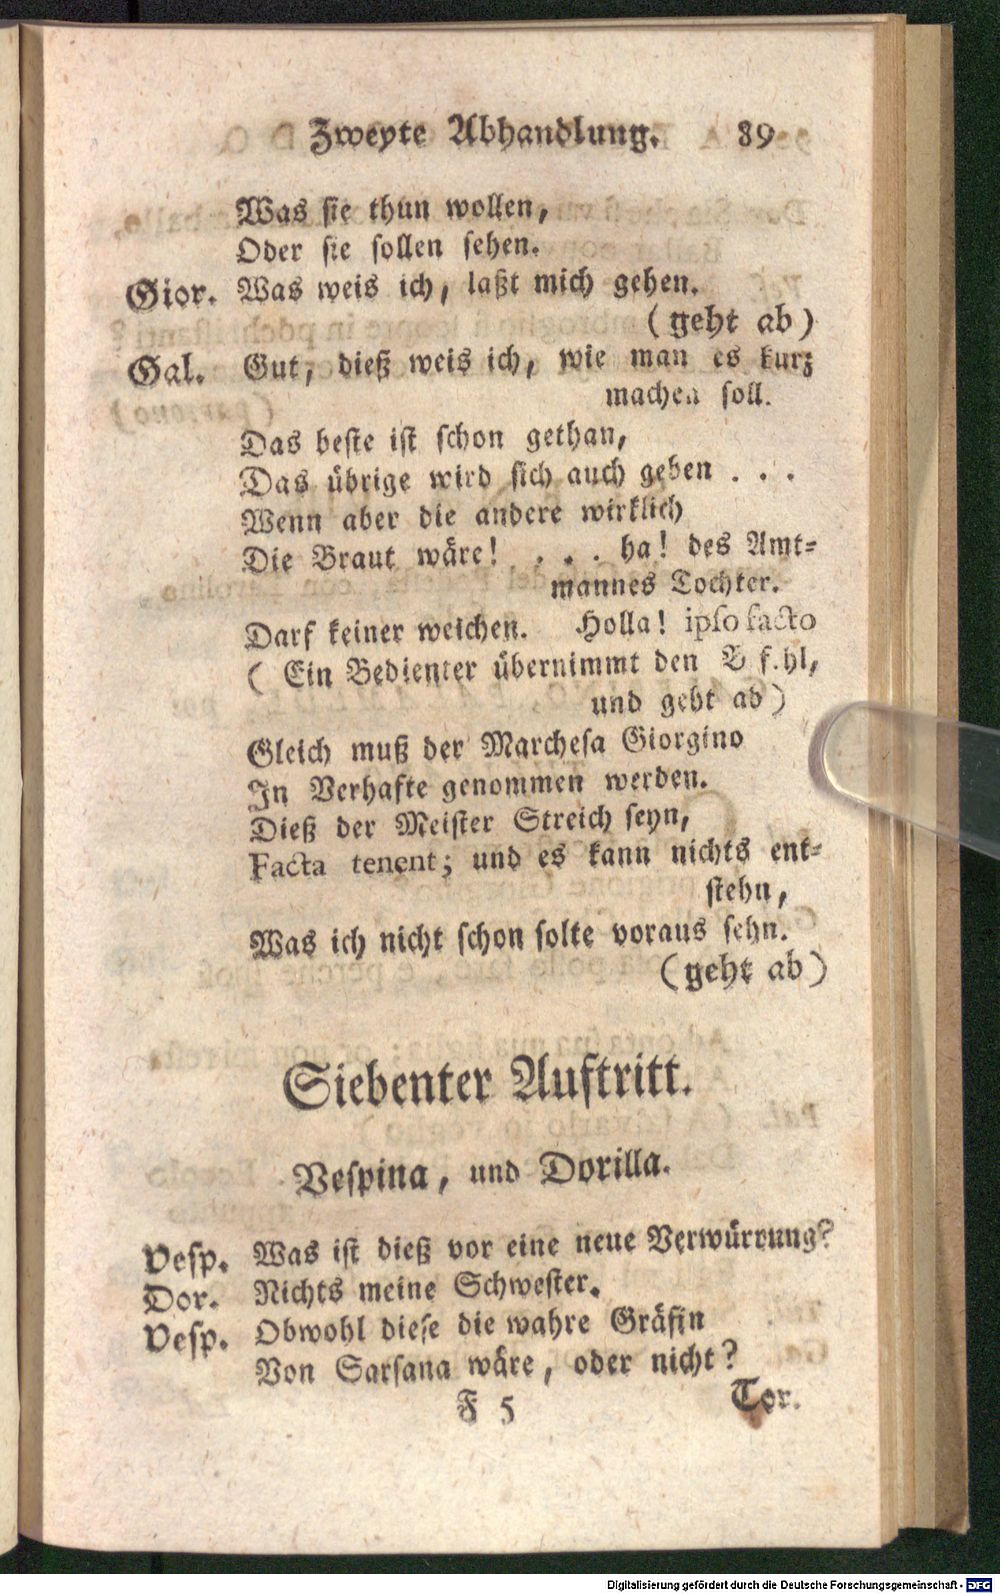 Zweyte Abhandlung. 89
Was sie thun wollen,
Oder sie sollen sehen.
Gior. Was weis ich, laßt mich gehen.
(geht ab)
Gal. Gut, dieß weis ich, wie man es kurz
machen soll.
Das beste ist schon gethan,
Das übrige wird sich auch geben . . .
Wenn aber die andere wirklich
Die Braut wäre! . . . ha! des Amt=
mannes Tochter.
Darf keiner weichen. Holla! ipso facto
( Ein Bedienter übernimmt den B f.hl,
und geht ab)
Gleich muß der Marchesa Giorgino
In Verhafte genommen werden.
Dieß der Meister Streich seyn,
Facta tenent; und es kann nichts ent=
stehn,
Was ich nicht schon solte voraus sehn.
(geht ab)
Siebenter Auftritt.
Vespina, und Dorilla.
Vesp. Was ist dieß vor eine neue Verwürrung?
Dor. Nichts meine Schwester.
Vesp. Obwohl diese die wahre Gräfin
Von Sarsana wäre, oder nicht?
F 5 Tor.
Digitalisierung gefördert durch die Deutsche Forschungsgemeinschaft - DFG